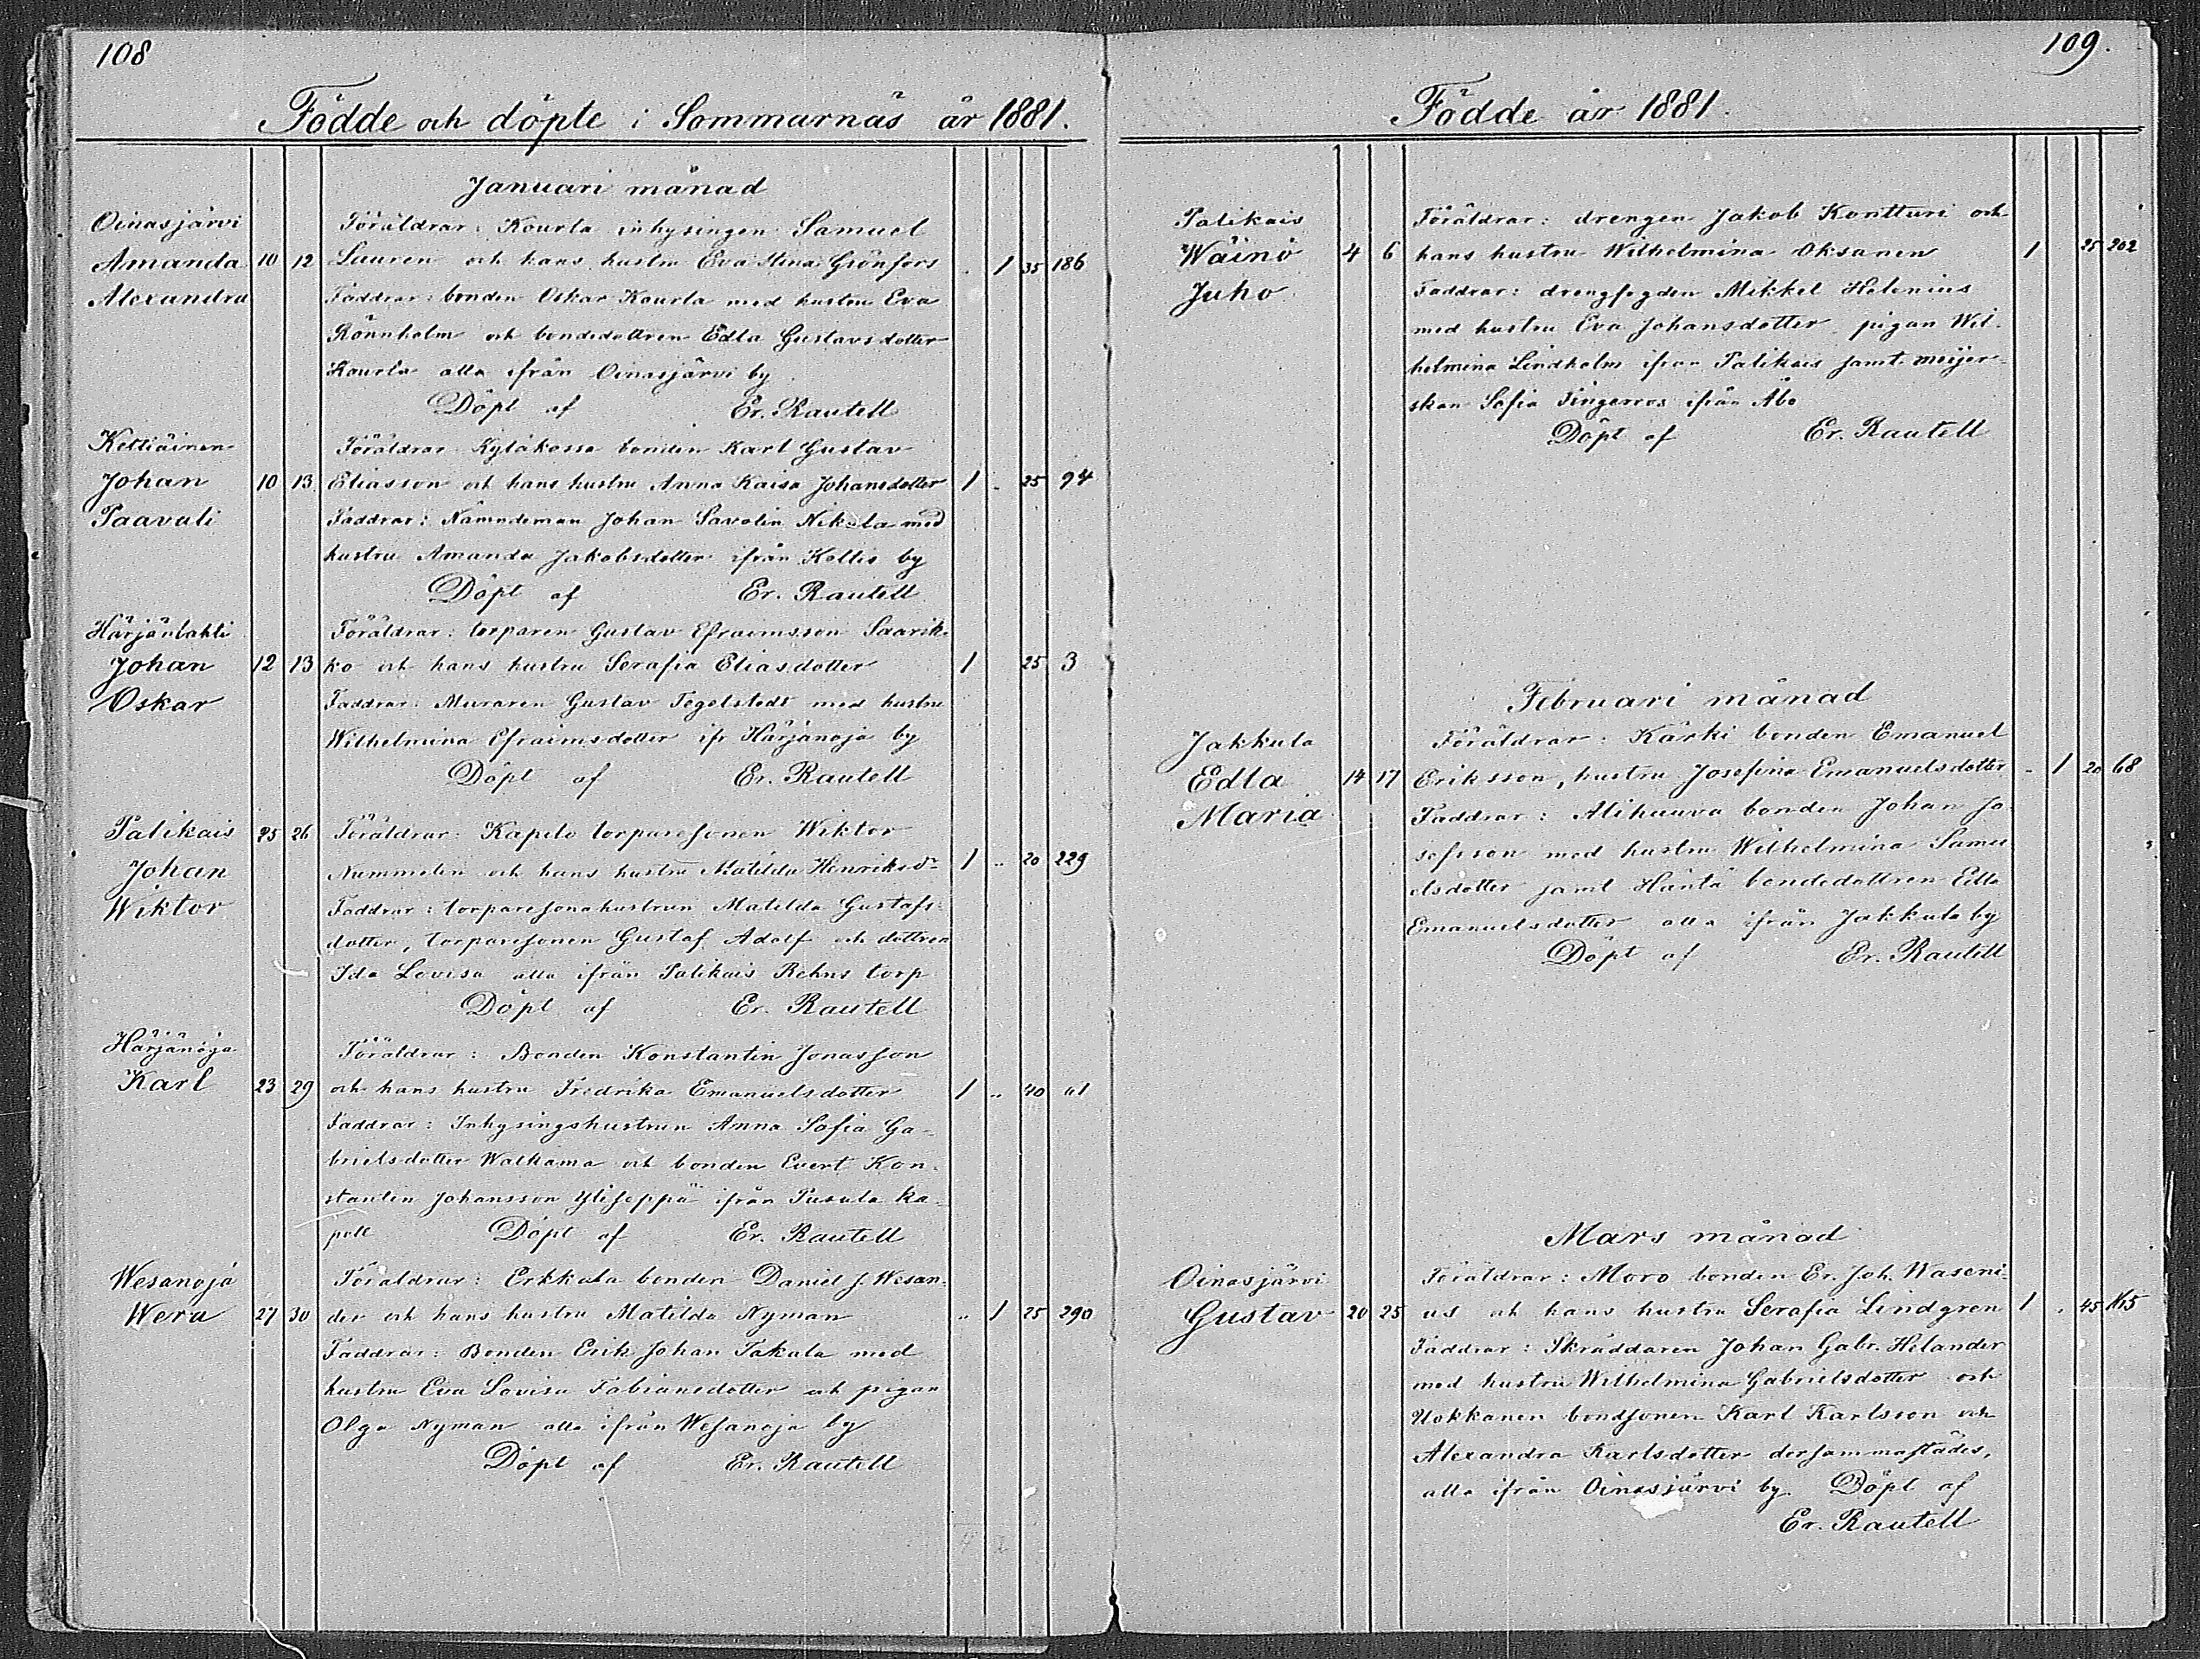 108
Födde och döpte i Sommarnäs år 1881.
Januari månad
Oinasjärvi
Amanda 10 12
Alexandra
Föräldrar: Kourla inhysingen Samuel
Lauren och hans hustru Eva Stina Grönfors . 1 35 186
Faddrar: bonden Oskar Kourla med hustru Eva
Rönnholm och bondedottren Edla Gustavsdotter
Kourla alla ifrån Oinasjärvi by
Döpt af Er. Rautell
Kettiäinen
Johan 10 13
Paavali
Föräldrar Kyläkossa bonden Karl Gustav
Eliasson och hans hustru Anna Kaisa Johansdotter 1 . 25 94
Faddrar: Nämndeman Johan Savolin Nikula med
hustru Amanda Jakobsdotter ifrån Kettis by
Döpt af Er. Rautell
Härjänlahti
Johan 12 13
Oskar
Föräldrar: torparen Gustav Efraimsson Saarik
ko och hans hustru Serafia Eliasdotter 1 25 3
Faddrar: Muraren Gustav Tegelstedt med hustru
Wilhelmina Efraimsdotter ifr Härjänoja by
Döpt af Er. Rautell
Palikais 25 26
Johan
Wiktor
Föräldrar: Kapilo torparesonen Wiktor
Nummelin och hans hustru Matilda Henriksdr 1 .. 20 229
Faddrar: torparesonahustrun Matilda Gustafs
dotter, torparesonen Gustaf Adolf och dottren
Ida Lovisa alla ifrån Palikais Rehns torp
Döpt af Er. Rautell
Härjänoja
Karl 23 29
Föräldrar: Bonden Konstantin Jonasson
och hans hustru Fredrika Emanuelsdotter 1 .. 40 61
Faddrar: Inhysingshustrun Anna Sofia Ga-
brielsdotter Walkama och bonden Evert Kon-
stantin Johansson Yliseppä ifrån Pusula ka-
pell Döpt af Er. Rautell
Wesanoja
Wera 27 30
Föräldrar: Erkkala bonden Daniel J. Wesan-
der och hans hustru Matilda Nyman .. 1 25 290
Faddrar: Bonden Erik Johan Takala med
hustru Eva Lovisa Fabiansdotter och pigan
Olga Nyman alla ifrån Wesanoja by
Döpt af Er. Rautell
109.
Födde år 1881.
Palikais
Wäinö 4 6
Juho
Föräldrar: drengen Jakob Kontturi och
hans hustru Wilhelmina Oksanen 1 25 202
Faddrar: drengfogden Mikkel Helenius
med hustru Eva Johansdotter, pigan Wil-
helmina Lindholm ifrån Palikais samt meijer-
skan Sofia Fingerros ifrån Åbo
Döpt af Er. Rautell
Februari månad
Jakkula
Edla 14 17
Maria
Föräldrar: Kärki bonden Emanuel
Eriksson, hustru Josefina Emanuelsdotter . 1 20 68
Faddrar: Alihaava bonden Johan Jo
sefsson med hustru Wilhelmina Samu
elsdotter samt Häntä bondedottren Edla
Emanuelsdotter alla ifrån Jakkula by
Döpt af Er. Rautell
Mars månad
Oinasjärvi
Gustav 20 25
Föräldrar: Moro bonden Er. Joh. Waseni-
us och hans hustru Serafia Lindgren 1 . 45 165
Faddrar: Skräddaren Johan Gabr. Helander
med hustru Wilhelmina Gabrielsdotter och
Uokkanen bondsonen Karl Karlsson och
Alexandra Karlsdotter dersammastädes,
alla ifrån Oinasjärvi by. Döpt af
Er. Rautell